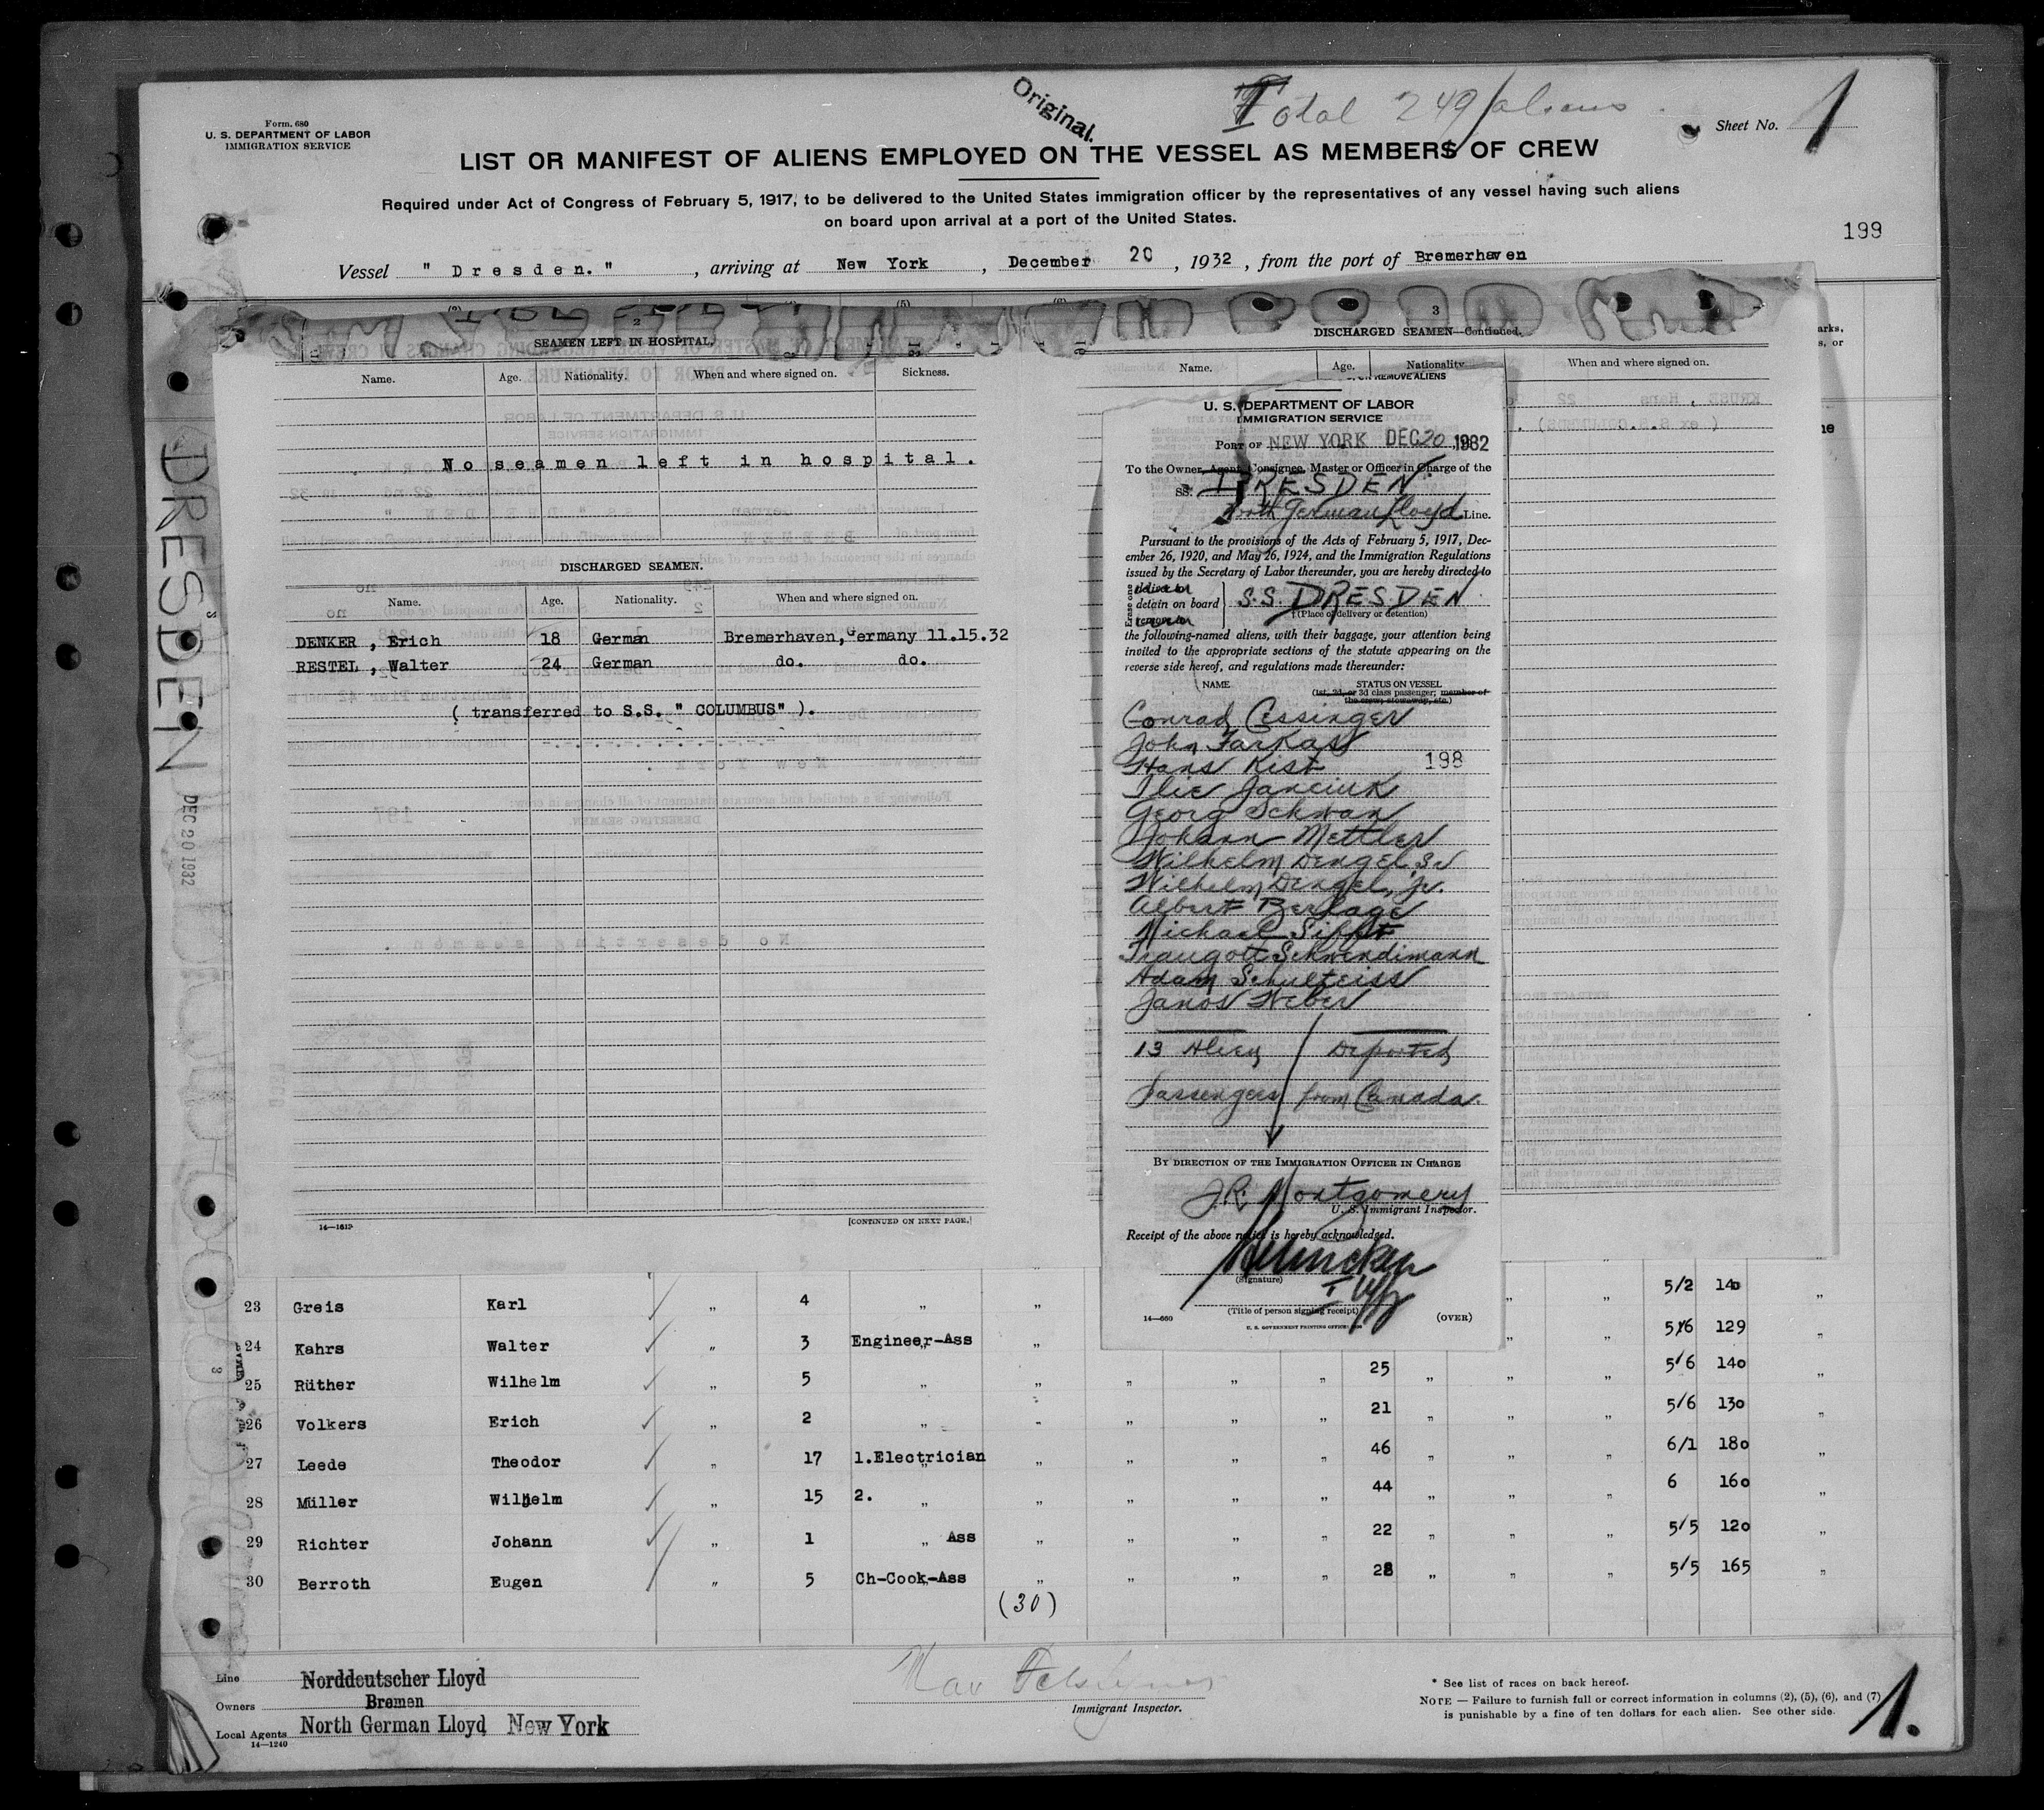 Original.
Total 249 aliens
Form. 680
U. S. DEPARTMENT OF LABOR
IMMIGRATION SERVICE
Sheet No. 1
LIST OR MANIFEST OF ALIENS EMPLOYED ON THE VESSEL AS MEMBERS OF CREW
Required under Act of Congress of February 5, 1917, to be delivered to the United States immigration officer by the representatives of any vessel having such aliens
on board upon arrival at a port of the United States.
199
Vessel " Dresden. " , arriving at New York , December 20 , 1932 , from the port of Bremerhaven
2
SEAMEN LEFT IN HOSPITAL.
Name. Age. Nationality. When and where signed on. Sickness.
No seamen left in hospital.
DISCHARGED SEAMEN.
Name. Age. Nationality. When and where signed on.
DENKER , Erich 18 German Bremerhaven, Germany 11.15.32
RESTEL , Walter 24 German do. do.
( transferred to S.S. " COLUMBUS" ).
14—1613
[CONTINUED ON NEXT PAGE.]
DRESDEN
DEC 20 1932
3
DISCHARGED SEAMEN—Continued.
Name. Age. Nationality When and where signed on.
OR REMOVE ALIENS
U. S. DEPARTMENT OF LABOR
IMMIGRATION SERVICE
PORT OF NEW YORK DEC 20 1932
To the Owner, Agent, Consignee, Master or Officer in Charge of the
SS. DRESDEN
North German Lloyd Line.
Pursuant to the provisions of the Acts of February 5, 1917, Dec-
ember 26, 1920, and May 26, 1924, and the Immigration Regulations
issued by the Secretary of Labor thereunder, you are hereby directed to
Erase one
deliver to
detain on board S.S. DRESDEN
remove to
(Place of delivery or detention)
the following-named aliens, with their baggage, your attention being
invited to the appropriate sections of the statute appearing on the
reverse side hereof, and regulations made thereunder:
NAME STATUS ON VESSEL
(1st, 2d, or 3d class passenger; member of
the crew; stowaway, etc.)
Conrad Cessinger
John Farkas
Hans Kist 198
Ilie Janciuk
Georg Schwan
Johann Mettler
Wilhelm Dengel, Sr
Wilhelm Dengel, Jr.
Albert Berlage
Michael Siffit
Traugott Schwendimann
Adam Schulteiss
Janos Weber
13 Alien Deported
Passengers from Canada.
BY DIRECTION OF THE IMMIGRATION OFFICER IN CHARGE
J.R. Montgomery
U. S. Immigrant Inspector.
Receipt of the above notice is hereby acknowledged.
(Signature)
(Title of person signing receipt)
14—660
U. S. GOVERNMENT PRINTING OFFICE
(OVER)
23 Greis Karl " 4 " " " " 5/2 140 "
24 Kahrs Walter " 3 Engineer-Ass " " " 5/6 129 "
25 Rüther Wilhelm " 5 " " " " " 25 " " " 5/6 140 "
26 Volkers Erich " 2 " " " " " 21 " " " 5/6 130 "
27 Leede Theodor " 17 1.Electrician " " " " 46 " " " 6/1 180 "
28 Müller Wilhelm " 15 2. " " " " " 44 " " " 6 160 "
29 Richter Johann " 1 " Ass " " " " 22 " " " 5/5 120 "
30 Berroth Eugen " 5 Ch-Cook-Ass " " " " 28 " " " 5/5 165 "
(30)
Line Norddeutscher Lloyd
Owners Bremen
Local Agents North German Lloyd New York
14—1240
Immigrant Inspector.
* See list of races on back hereof.
NOTE — Failure to furnish full or correct information in columns (2), (5), (6), and (7)
is punishable by a fine of ten dollars for each alien. See other side.
1.